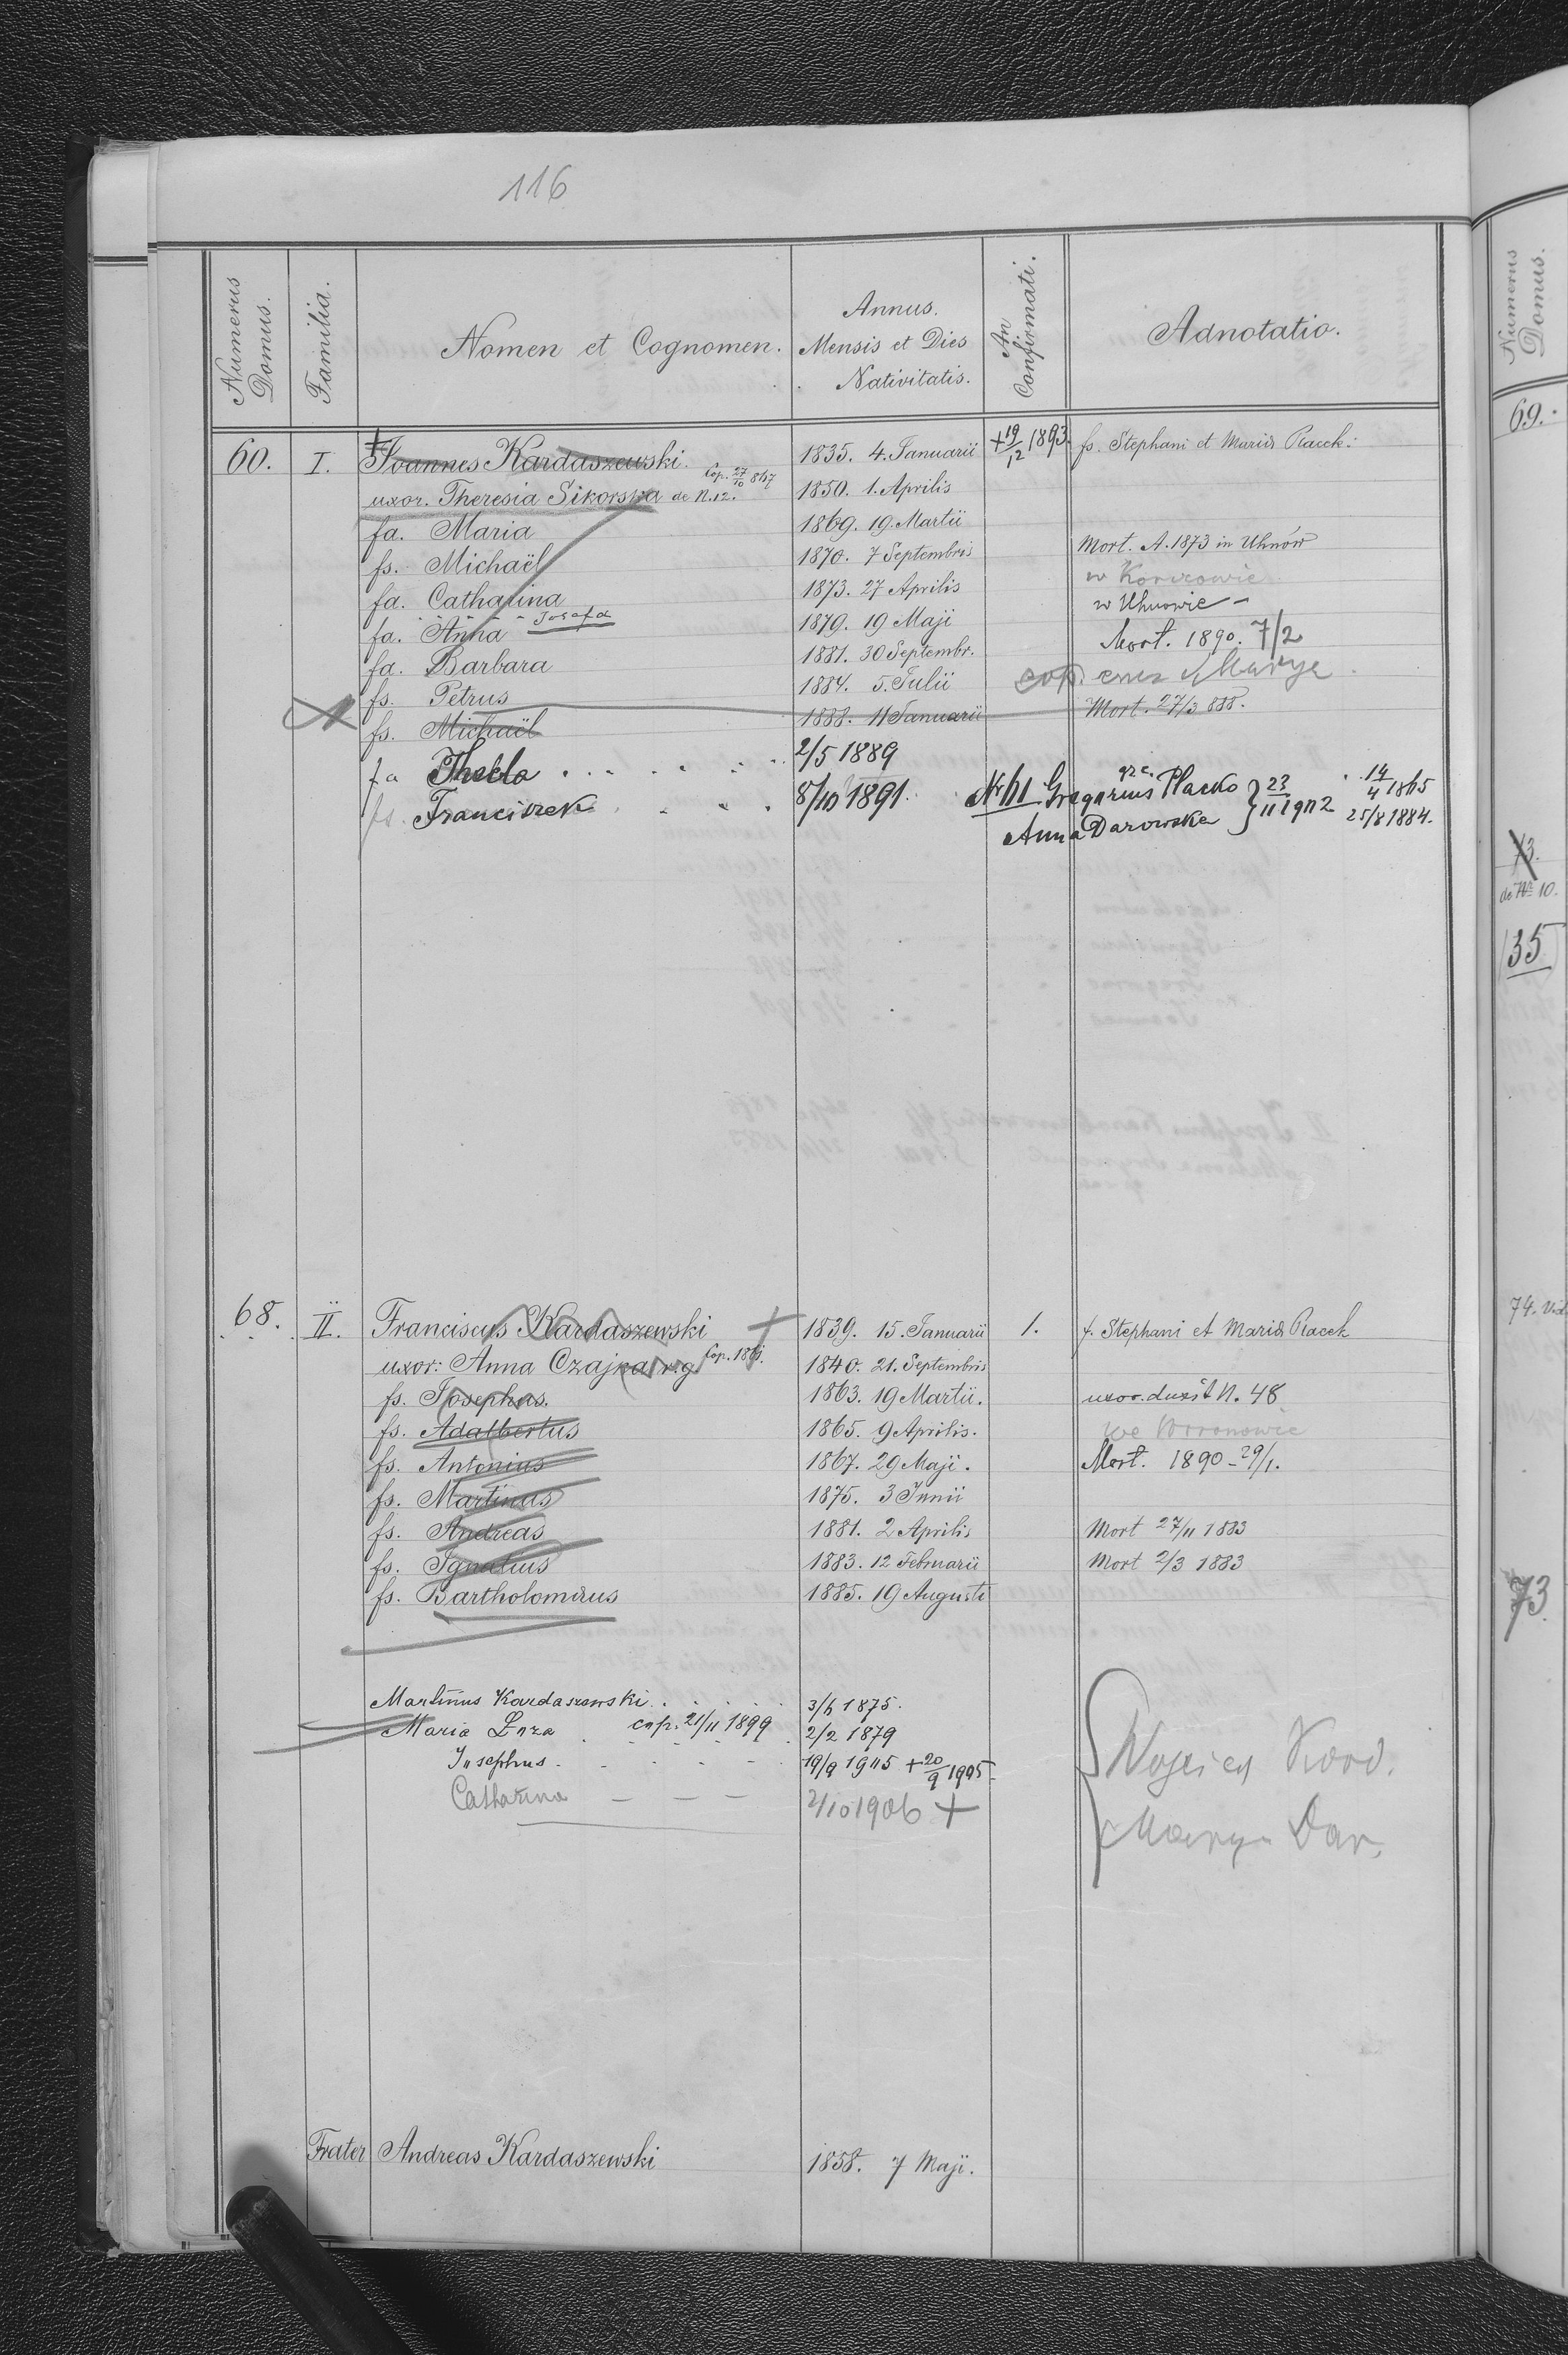 116
Numerus Domus.
Familia.
Nomen et Cognomen.
Annus. Mensis et Dies Nativitatis.
An Confirmati.
Adnotatio.
60. I. Joannes Kardaszewski. 1835. 4. Januarii + 19/12 1893. fs. Stephani et Mariæ Racek.
uxor. Theresia Sikorska de N. 12. Cop. 27/10 867 1850. 1. Aprilis
fa. Maria 1869. 19. Martii
fs. Michaël 1870. 7 Septembris Mort. A. 1873 in Uhnów
fa. Catharina 1873. 27 Aprilis w
fa. Anna Josefa 1879. 19 Maji w Uhnowie
fa. Barbara 1881. 30 Septembr. Mort. 1890. 7/2
fs. Petrus 1884. 5. Julii cop.
fs. Michaël 1888. 11 Januarii Mort. 27/3 888.
fa Thekla 2/5 1889
fs. Franciszek 8/10 1891. Nr 61 Gregorius Placko gr. c. 23/11 1902 14/4 1865
Anna Darowska 25/8 1884.
68. II. Franciscus Kardaszewski + 1839. 15. Januarii 1. f. Stephani et Mariæ Racek
uxor: Anna Czajka r. g. Cop. 1861. 1840. 21. Septembris
fs. Josephus. 1863. 19 Martii. uxor. duxit N. 48
fs. Adalbertus 1865. 9 Aprilis. we
fs. Antonius 1867. 29 Maji. Mort. 1890 - 29/1.
fs. Martinus 1875. 3 Junii
fs. Andreas 1881. 2 Aprilis Mort 27/11 1883
fs. Ignatius 1883. 12 Februarii Mort 2/3 1883
fs. Bartholomæus 1885. 19 Augusti
Martinus Kardaszewski 3/6 1875.
Maria cop. 21/11 1899 2/2 1879
Josephus 19/9 1905 + 20/9 1905
Catharina 2/10 1906 +
Wojciech Kard.
Marya Dar.
Frater Andreas Kardaszewski 1858. 7 Maji.
Numerus Domus.
69.
73.
de № 10.
35
74. Vid
73